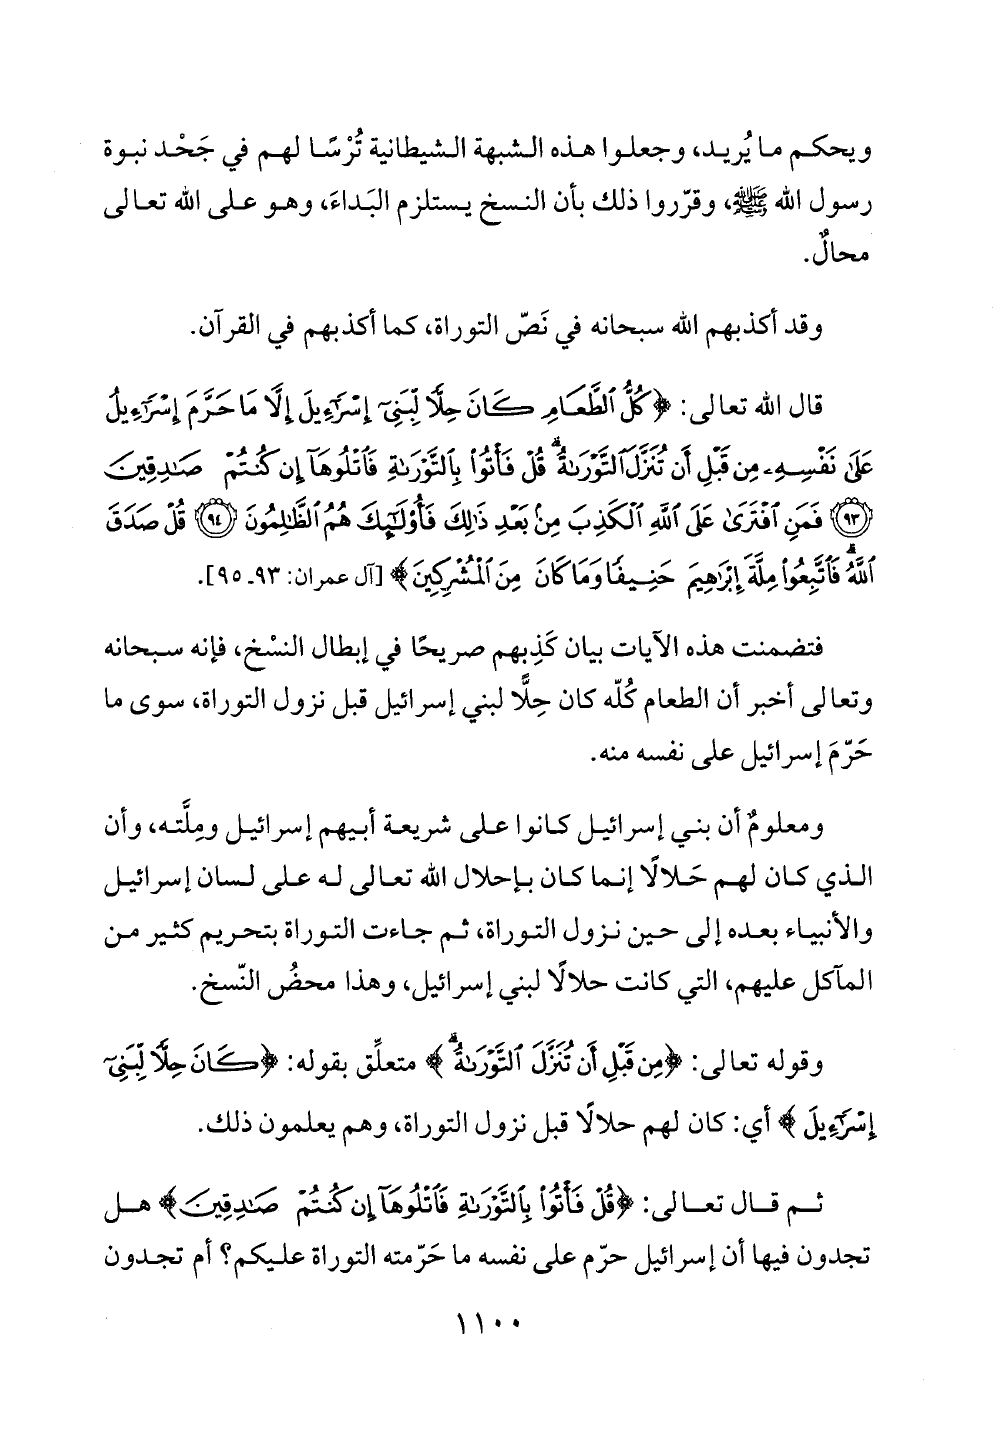 ويحكم ما يُريد، وجعلوا هذه الشبهة الشيطانية تُرْسًا لهم في جَحْد نبوة
رسول الله ﷺ، وقرّروا ذلك بأن النسخ يستلزم البَداءَ، وهو على الله تعالى
محالٌ.
وقد أكذبهم الله سبحانه في نَصّ التوراة، كما أكذبهم في القرآن.
قال الله تعالى: ﴿كُلُّ ٱلطَّعَامِ كَانَ حِلًّا لِّبَنِىٓ إِسْرَٰٓءِيلَ إِلَّا مَا حَرَّمَ إِسْرَٰٓءِيلُ
عَلَىٰ نَفْسِهِۦ مِن قَبْلِ أَن تُنَزَّلَ ٱلتَّوْرَىٰةُ ۗ قُلْ فَأْتُوا۟ بِٱلتَّوْرَىٰةِ فَٱتْلُوهَآ إِن كُنتُمْ صَـٰدِقِينَ
﴿٩٣﴾ فَمَنِ ٱفْتَرَىٰ عَلَى ٱللَّهِ ٱلْكَذِبَ مِنۢ بَعْدِ ذَٰلِكَ فَأُو۟لَـٰٓئِكَ هُمُ ٱلظَّـٰلِمُونَ ﴿٩٤﴾ قُلْ صَدَقَ
ٱللَّهُ ۗ فَٱتَّبِعُوا۟ مِلَّةَ إِبْرَٰهِيمَ حَنِيفًا وَمَا كَانَ مِنَ ٱلْمُشْرِكِينَ﴾ [آل عمران: ٩٣ـ ٩٥].
فتضمنت هذه الآيات بيان كَذِبهم صريحًا في إبطال النسْخ، فإنه سبحانه
وتعالى أخبر أن الطعام كُلّه كان حِلًّا لبني إسرائيل قبل نزول التوراة، سوى ما
حَرّمَ إسرائيل على نفسه منه.
ومعلومٌ أن بني إسرائيل كانوا على شريعة أبيهم إسرائيل ومِلَّته، وأن
الذي كان لهم حَلالًا إنما كان بإحلال الله تعالى له على لسان إسرائيل
والأنبياء بعده إلى حين نزول التوراة، ثم جاءت التوراة بتحريم كثير من
المآكل عليهم، التي كانت حلالًا لبني إسرائيل، وهذا محضُ النّسخ.
وقوله تعالى: ﴿مِن قَبْلِ أَن تُنَزَّلَ ٱلتَّوْرَىٰةُ ۗ﴾ متعلِّق بقوله: ﴿كَانَ حِلًّا لِّبَنِىٓ
إِسْرَٰٓءِيلَ﴾ أي: كان لهم حلالًا قبل نزول التوراة، وهم يعلمون ذلك.
ثم قال تعالى: ﴿قُلْ فَأْتُوا۟ بِٱلتَّوْرَىٰةِ فَٱتْلُوهَآ إِن كُنتُمْ صَـٰدِقِينَ﴾ هل
تجدون فيها أن إسرائيل حرّم على نفسه ما حَرّمته التوراة عليكم؟ أم تجدون
١١٠٠